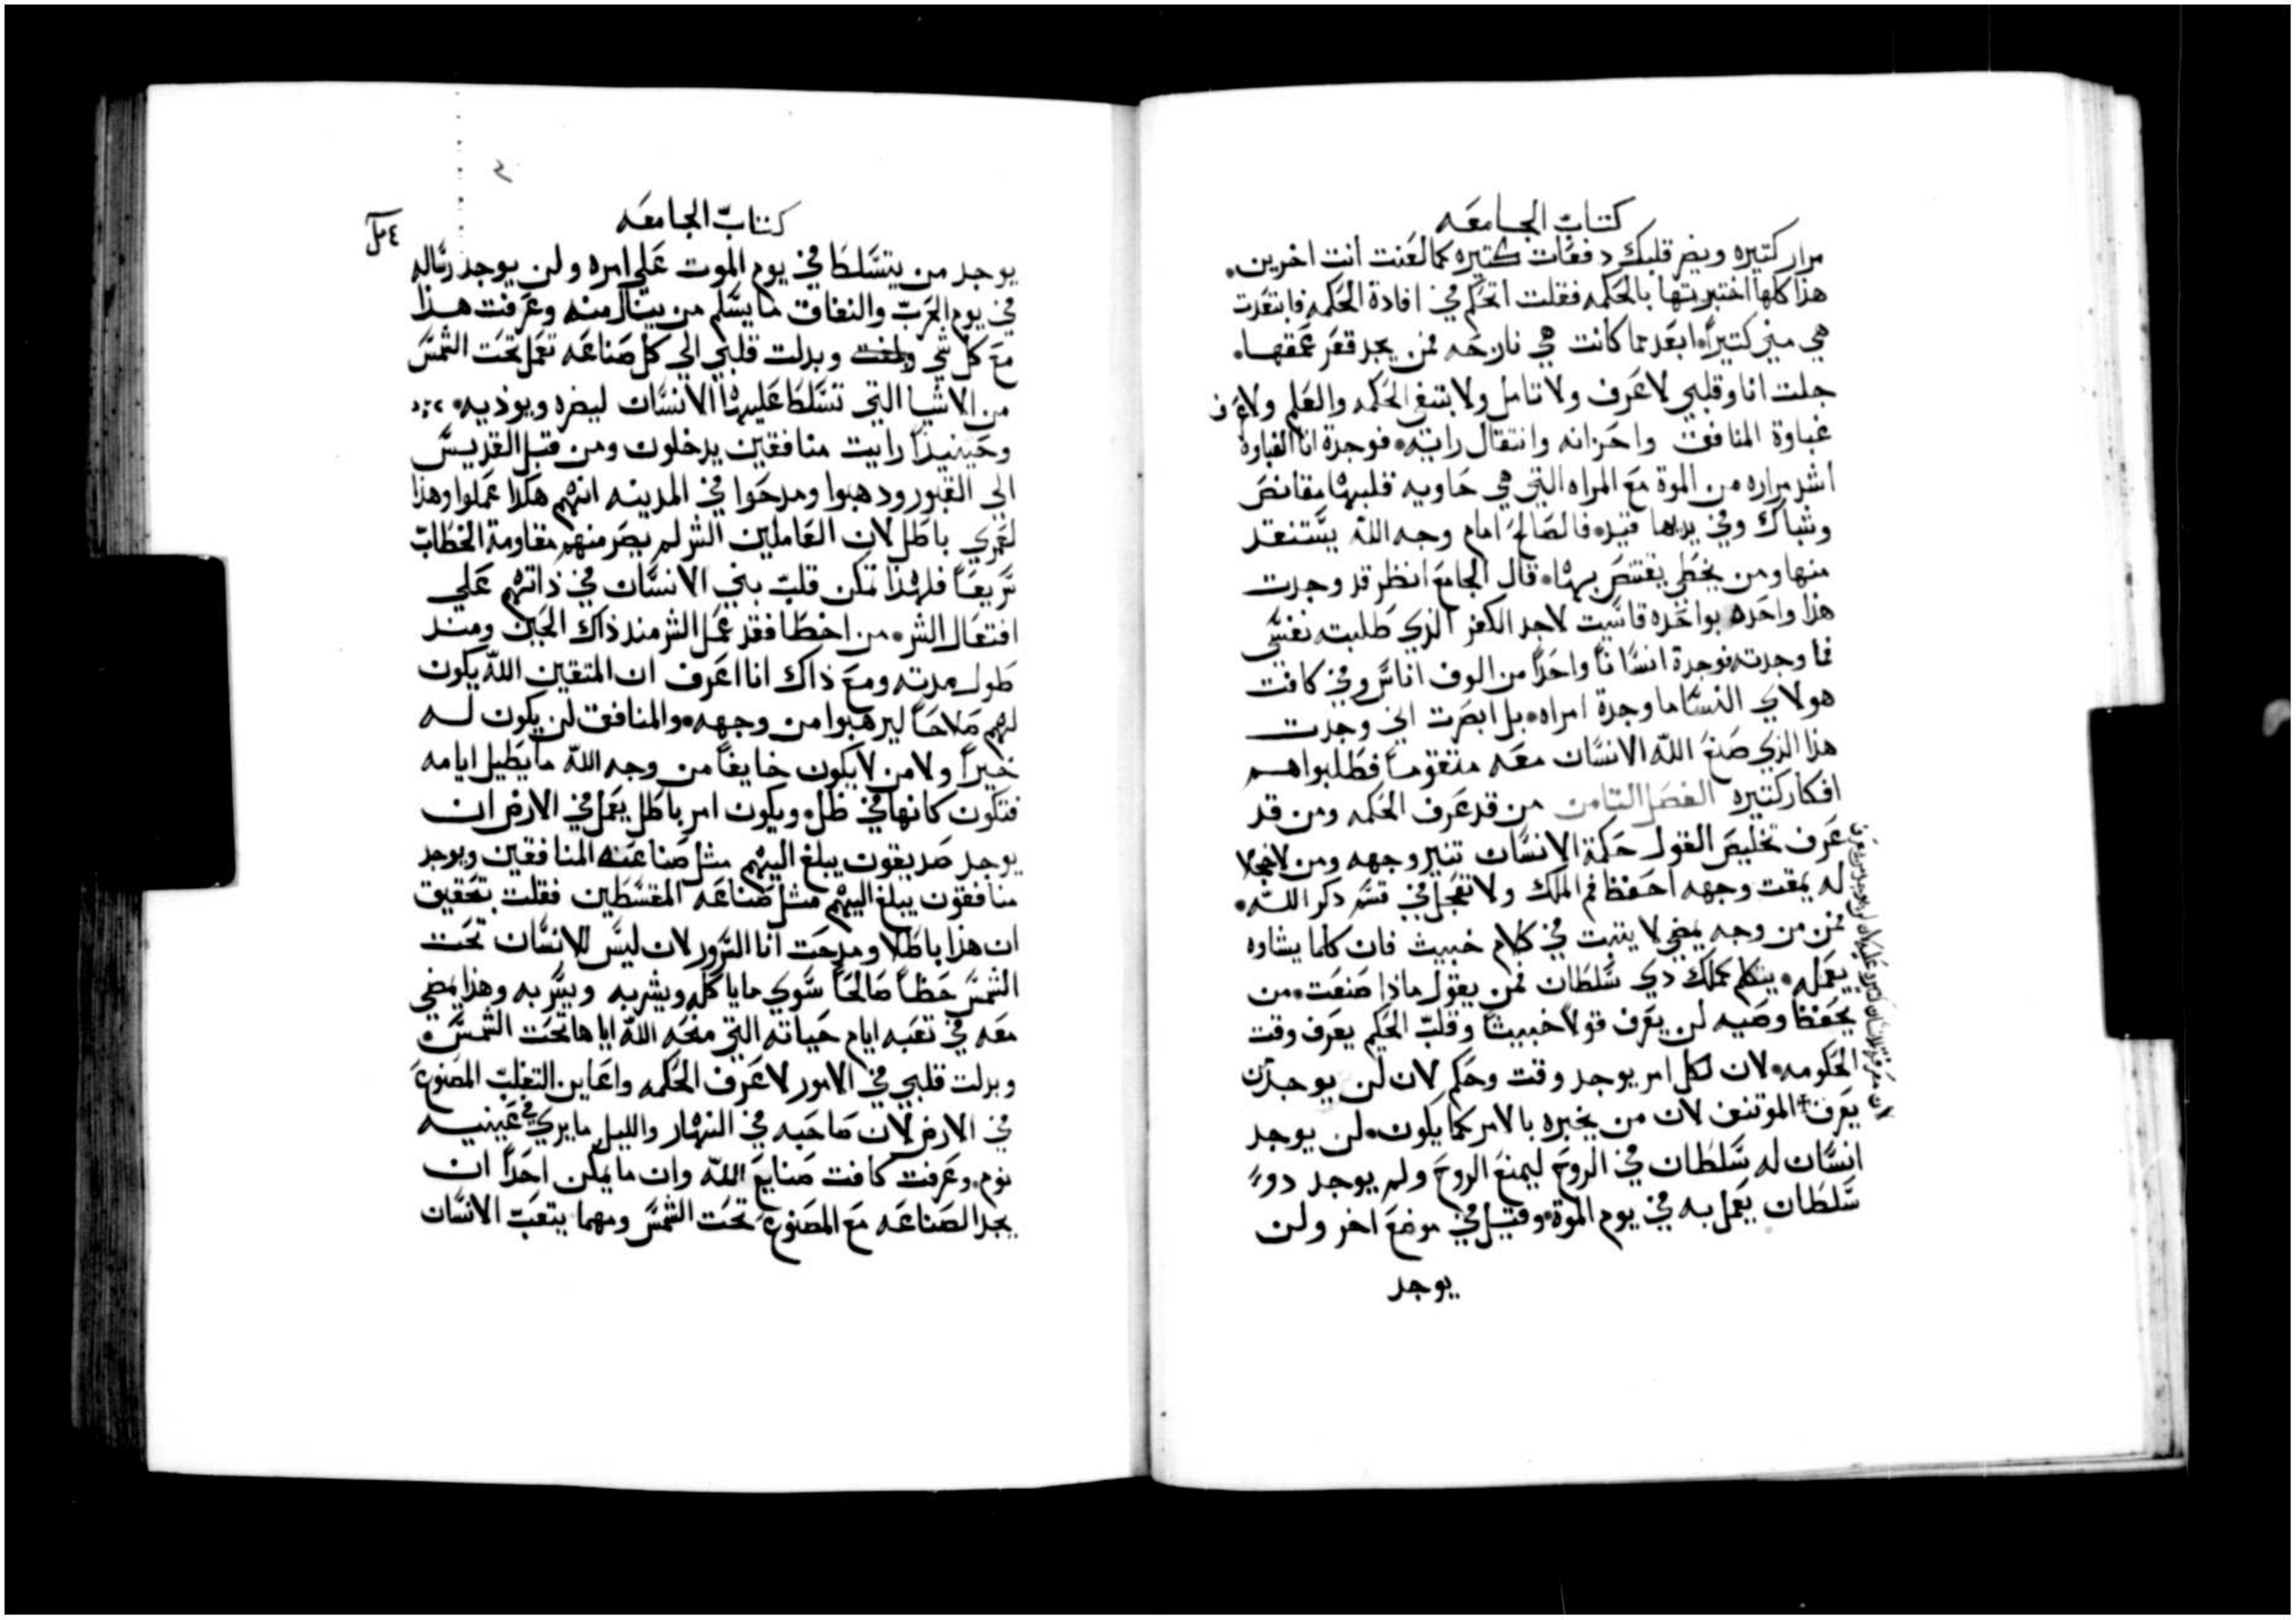 كتاب الجامعه
مرار كتيره ويضر قلبك دفعات كتيره كما لعنت انت اخرين.
هذا كلها اختبرتها بالحكمه فقلت اتحكم في افادة الحكمه فابتعدت
هي مني كتيراً ابعد مما كانت هي نازحه فمن يجد قعر عمقها.
جلت انا وقلبي لاعرف ولاتامل ولابتغي الحكمه والعلم ولاعرف
غباوة المنافق واحزانه وانتقال رايته. فوجدة انا الغباوة
اشد مراره من الموة مع المراه التي هي حاويه قلبها مقانص
وشباك وفي يدها قيد. فالصالح امام وجه الله يستنقد
منها ومن يخطي يقتنص بها. قال الجامع انظر قد وجدت
هذا واحده بواحده قاسيت لاجد الكفر الذي طلبته نفسي
فما وجدته فوجدة انساناً واحداً من الوف اناس وفي كافت
هولاي النسا ما وجدة امراه. بل ابصرت اني وجدت
هذا الذي صنع الله الانسان معه متقوماً فطلبوا هم
افكار كتيره الفصل التامن من قد عرف الحكمه ومن قد
عرف تخليص القول حكمة الانسان تنير وجهه ومن لا خجلا
له يمقت وجهه احفظ فم الملك ولا تعجل في قسم دكر الله.
فمن من وجه يمضي لا يتبت في كلام خبيث فان كلما يشاوه
يعمله. يتكلم كملك دي سلطان فمن يقول ماذا صنعت. من
يحفظ وصيه لن يعرف قولاً خبيثاً وقلب الحكيم يعرف وقت
الحكومه. لان لكل امر يوجد وقت وحكم لان لن يوجد ان
يعرف الموتنف لان من يخبره بالامر كما يكون. لن يوجد
انسان له سلطان في الروح ليمنع الروح ولم يوجد دو
سلطان يعمل به في يوم الموة وقيل في موضع اخر ولن
يوجد
كتاب الجامعه
يوجد من يتسلط في يوم الموت على امره ولن يوجد رساله
في يوم الحرب والنفاق ما يسلم من ينال منه وعرفت هذا
مع كل شي وبدلت قلبي الي كل صناعه تعمل تحت الشمس
من الاشيا التي تسلط عليها الانسان ليضره ويوذيه.
وحينيذاً رايت منافقين يدخلون ومن قبل القديس
الي القبور ودهبوا ومدحوا في المدينه انهم هكذا عملوا وهذا
لعمري باطل لان العاملين الشر لم يصر منهم مقاومة الخطاب
سريعاً فلهذا تمكن قلب بني الانسان في ذاتهم علي
افتعال الشر. من اخطا فقد عمل الشر مند ذاك الحين ومند
طول مدته ومع ذاك انا اعرف ان المتقين الله يكون
لهم صلاحاً ليرهبوا من وجهه. والمنافق لن يكون له
خيراً ولا من لا يكون خايفاً من وجه الله ما يطيل ايامه
فتكون كانها في ظل. ويكون امر باطل يعمل في الارض ان
يوجد صديقون يبلغ اليهم مثل صناعه المنافقين ويوجد
منافقون يبلغ اليهم مثل صناعه المقسطين فقلت بتحقيق
ان هذا باطلا ومدحت انا السرور لان ليس للانسان تحت
الشمس حظاً صالحاً سوي ما ياكله ويشربه ويسر به وهذا يمضي
معه في تعبه ايام حياته التي منحه الله اياها تحت الشمس.
وبدلت قلبي في الامور لاعرف الحكمه واعاين التغلب المصنوع
في الارض لان صاحبه في النهار والليل ما يري في عينيه
نوم. وعرفت كافت صنايع الله وان ما يمكن احداً ان
يجد الصناعه مع المصنوع تحت الشمس ومهما يتعب الانسان